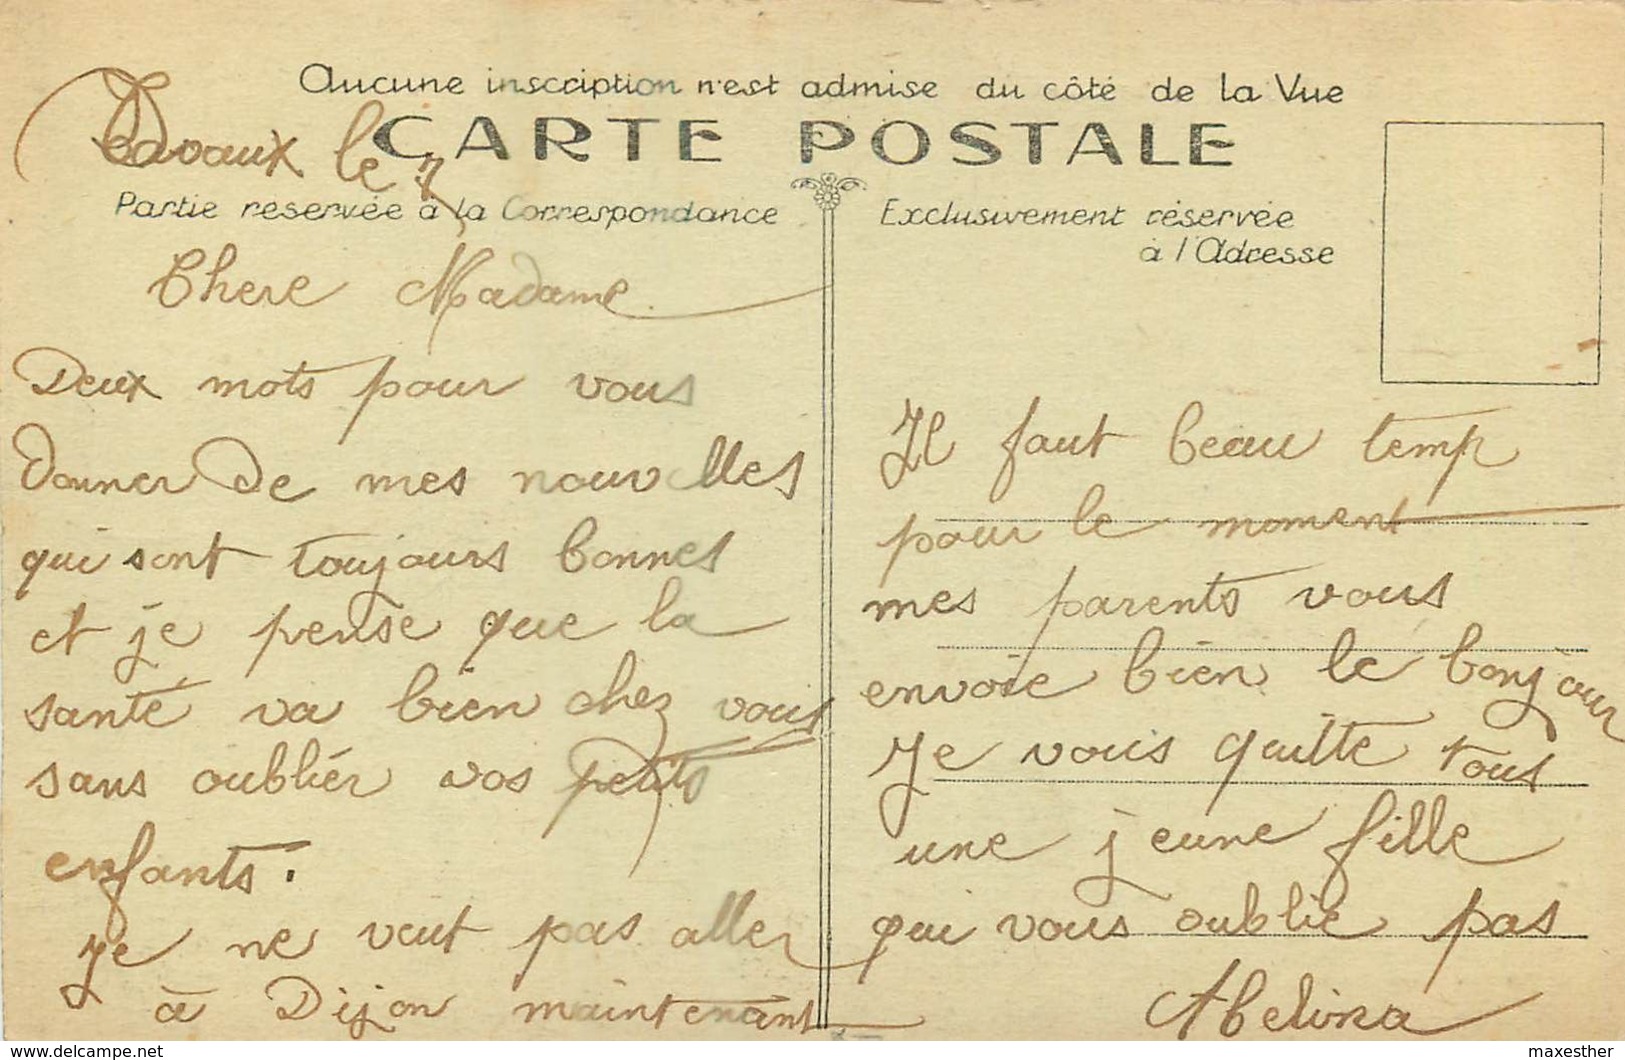 Aucune inscription n'est admise du côté de la Vue
CARTE POSTALE
le 7
Partie reservée à la Correspondance
Exclusivement réservée
à l'Adresse
Chere Madame
Deux mots pour vous
donner de mes nouvelles
qui sont toujours bonnes
et je pense que la
santé va bien chez vous
sans oublier vos petits
enfants.
Je ne veut pas aller
à Dijon maintenant
Il faut beau temp
pour le moment
mes parents vous
envoie bien le bonjour
Je vous quitte tous
une jeune fille
qui vous oublie pas
Abelina
maxesther